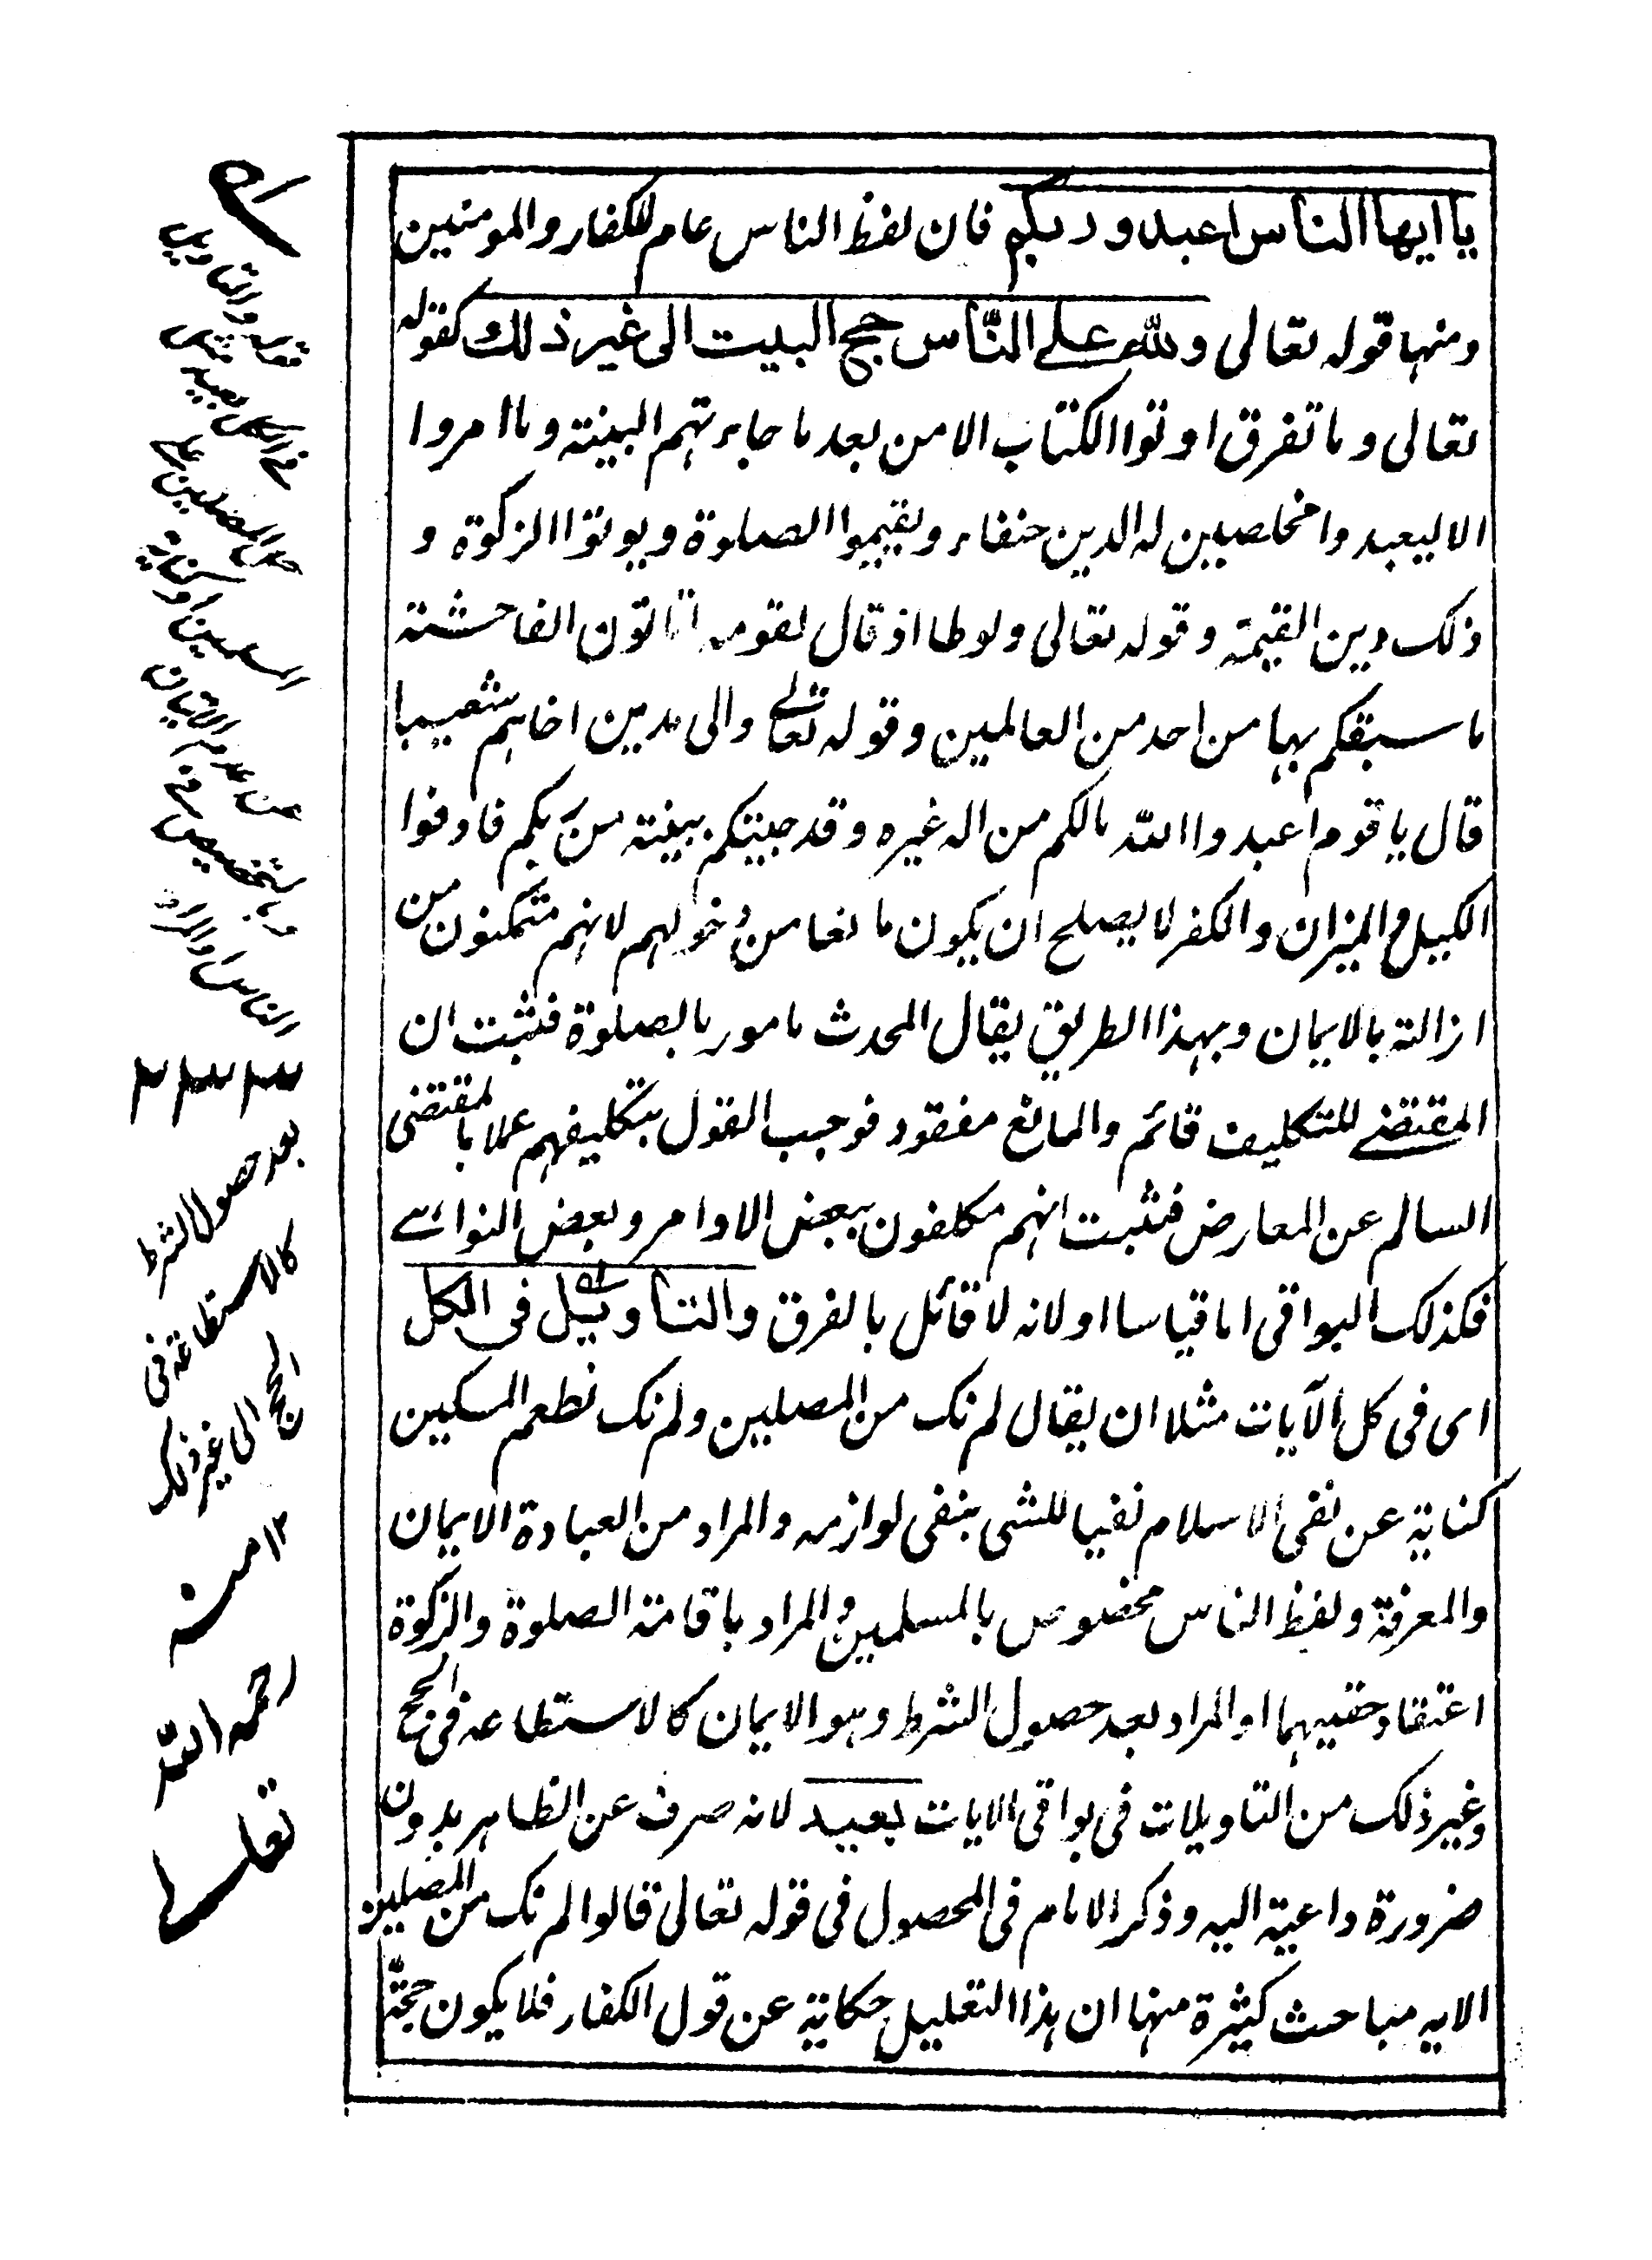 يا ايها الناس اعبدو ربكم فان لفظ الناس عام للكفار والمومنين
ومنها قوله تعالى ولله على النّاس حج البيت الى غير ذلك كقوله
تعالى وما تفرق اوتوا الكتاب الا من بعد ما جاءتهم البينة وما امروا
الا ليعبدوا مخلصين له الدين حنفاء ويقيموا الصلوة ويوتوا الزكوة و
ذلك دين القيمة وقوله تعالى ولوطا اذ قال لقومه اتاتون الفاحشة
ما سبقكم بها من احد من العالمين وقوله تعالے والى مدين اخاهم شعيبا
قال يا قوم اعبدوا الله مالكم من اله غيره وقد جيتكم ببينة من ربكم فاوفوا
الكيل والميزان والكفر لا يصلح ان يكون مانعا من دخولهم لانهم متمكنون من
ازالته بالايمان وبهذا الطريق يقال المحدث مامور بالصلوة فثبت ان
المقتضے للتكليف قائم والمانع مفقود فوجب القول بتكليفهم عملا بالمقتضى
السالم عن المعارض فثبت انهم مكلفون ببعض الاوامر وبعض النواہے
فكذلك البواقى اما قياسا او لانه لا قائل بالفرق والتاويل فى الكل
اى فى كل الآيات مثلا ان يقال لم نك من المصلين ولم نك نطعم المسكين
كناية عن نفى الاسلام نفيا للشى بنفى لوازمه والمراد من العبادة الايمان
والمعرفة ولفظ الناس مخصوص بالمسلمين والمراد باقامة الصلوة والزكوة
اعتقاد حقيهما او المراد بعد حصول الشرط وهو الايمان كالاستطاعه فى الحج
وغير ذلك من التاويلات فى بواقى الايات بعيد لانه صرف عن الظاهر بدون
ضرورة داعية اليه وذكر الامام فى المحصول فى قوله تعالى قالوا لم نك من المصلين
الايه مباحث كثيرة منها ان هذا التعليل حكاية عن قول الكفار فلا يكون حجّة
قوله والتاويل
فى الكل بعيد مثل
حمل المصلين على
المسلمين
وتخصيص
الناس والمراد
بعد حصول الشرط
كالاستطاعة فى
الحج الى غير ذلك
١٢ منه
رحمه الله
تعالے